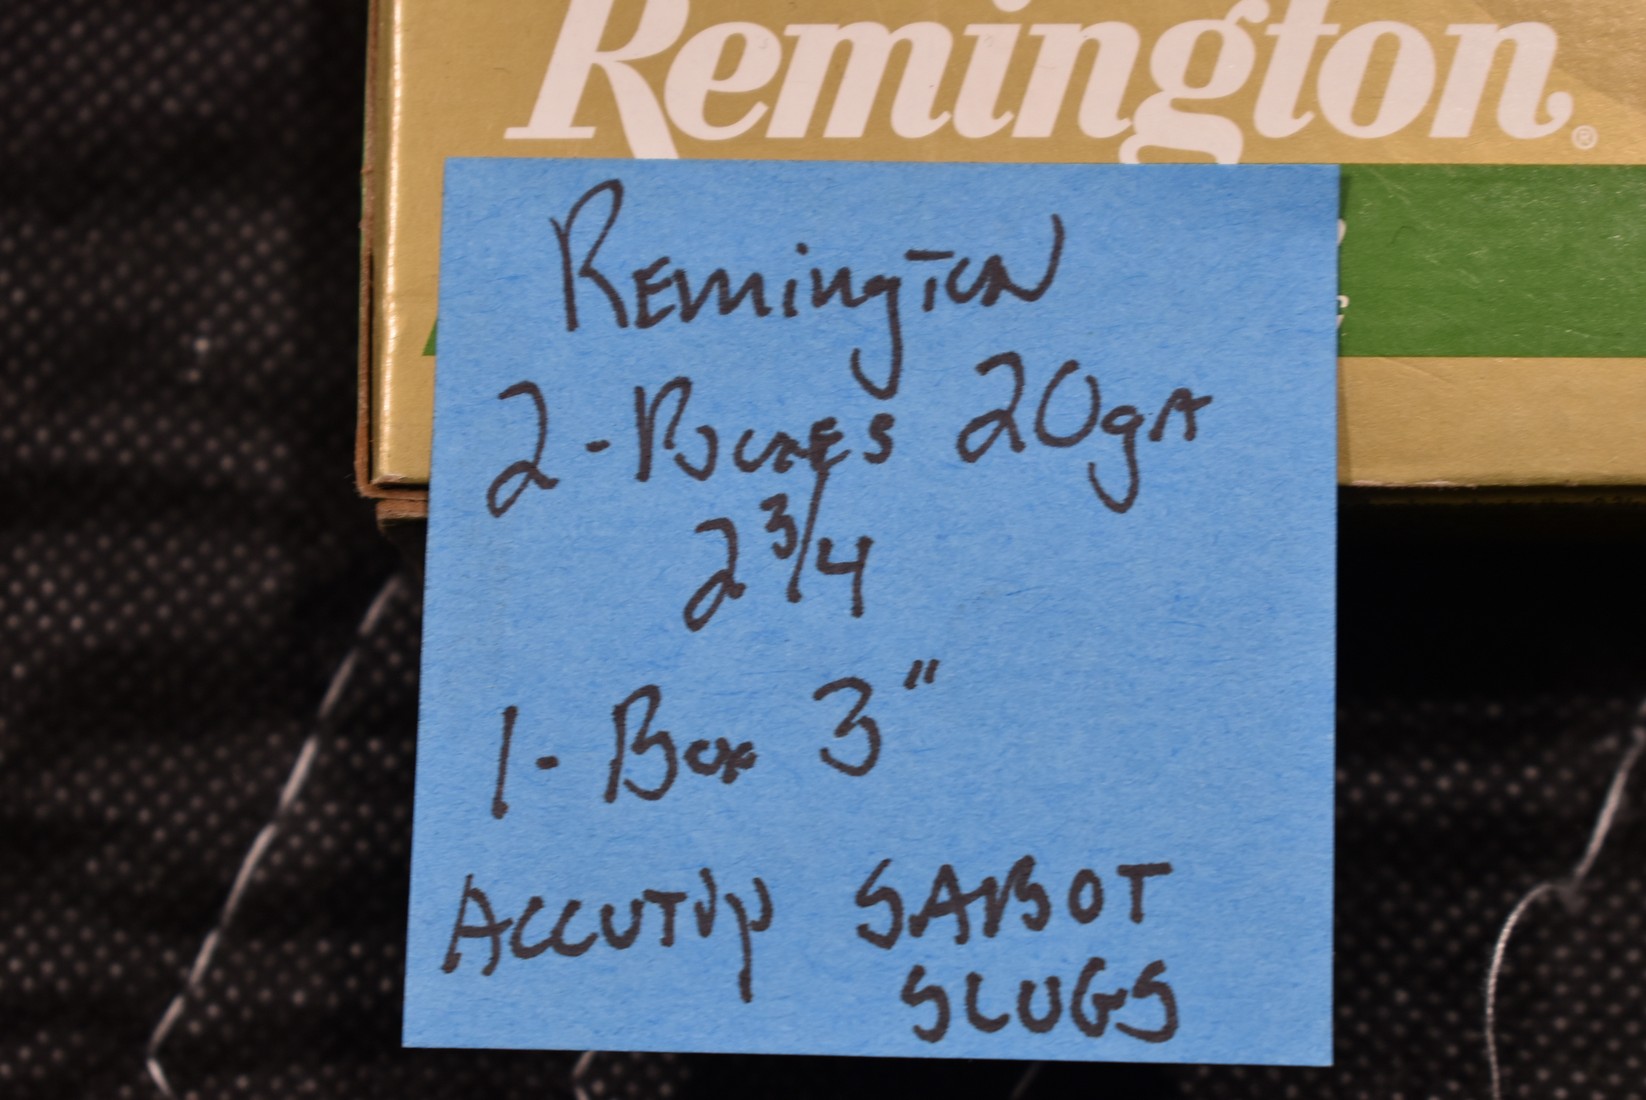 Remington®
Remington
2-Boxes 20gA
2 3/4
1- Box 3"
ACCUTip SABOT
SLUGS